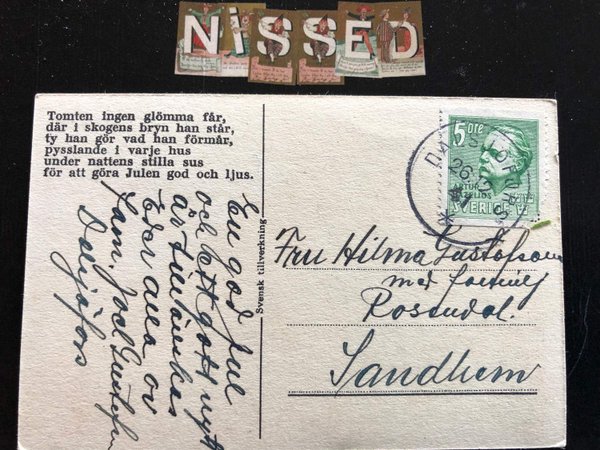 NISSED
Tomten ingen glömma får,
där i skogens bryn han står,
ty han gör vad han förmår,
pysslande i varje hus
under nattens stilla sus
för att göra Julen god och ljus.
En god Jul
och ett gott nytt
år tillönskas
Eder alla av
fam. Joel Gustafson
Dalsjöfors
Svensk tillverkning
5 öre
SVERIGE
Fru Hilma Gustafson
med familj
Rosendal.
Sandhem